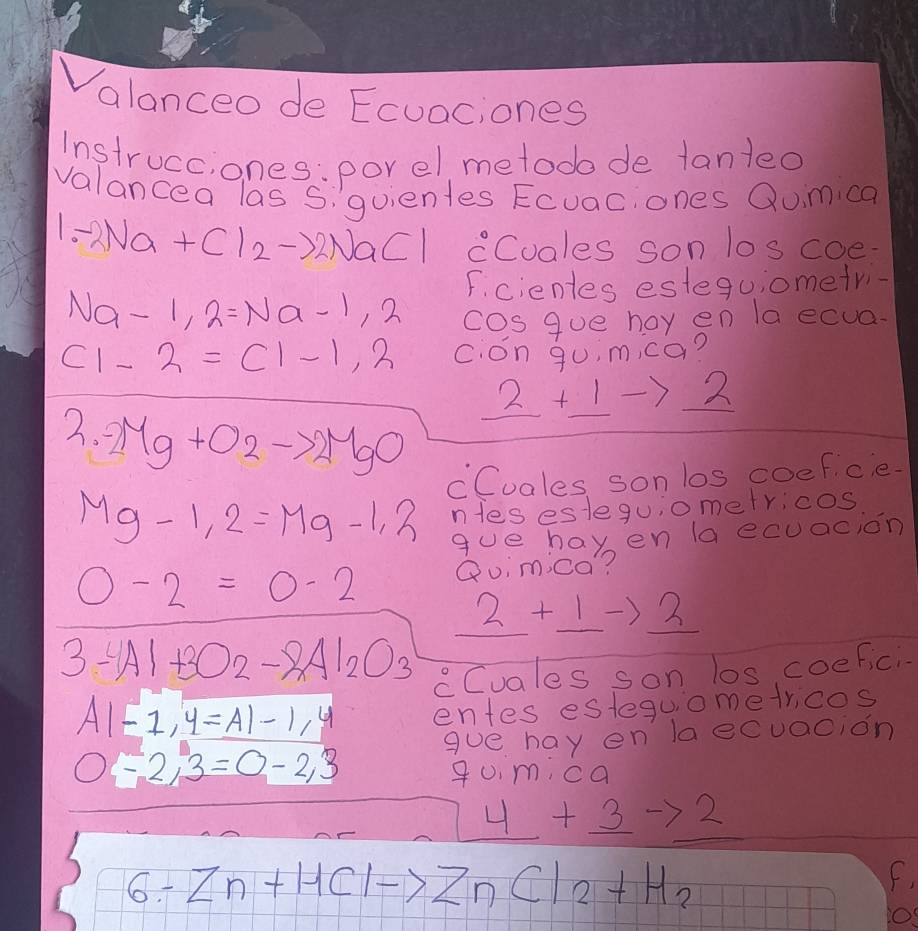 Valanceo de Ecuaciones
Instrucciones: por el metodo de tanteo
valancea las siguientes Ecuaciones Quimica
1.- 2Na + Cl2 -> 2NaCl
Na - 1, 2 = Na - 1, 2
Cl - 2 = Cl - 1, 2
¿Cuales son los coe-
ficientes estequiometri-
cos que hay en la ecua-
ción quimica?
2 + 1 -> 2
2.- 2Mg + O2 -> 2MgO
Mg - 1, 2 = Mg - 1, 2
O - 2 = O - 2
¿Cuales son los coeficie-
ntes estequiometricos
que hay en la ecuación
Quimica?
2 + 1 -> 2
3.- 4Al + 3O2 - 2Al2O3
Al - 1, 4 = Al - 1, 4
O - 2, 3 = O - 2, 3
¿Cuales son los coefici-
entes estequiometricos
que hay en la ecuación
quimica
4 + 3 -> 2
6.- Zn + HCl -> ZnCl2 + H2